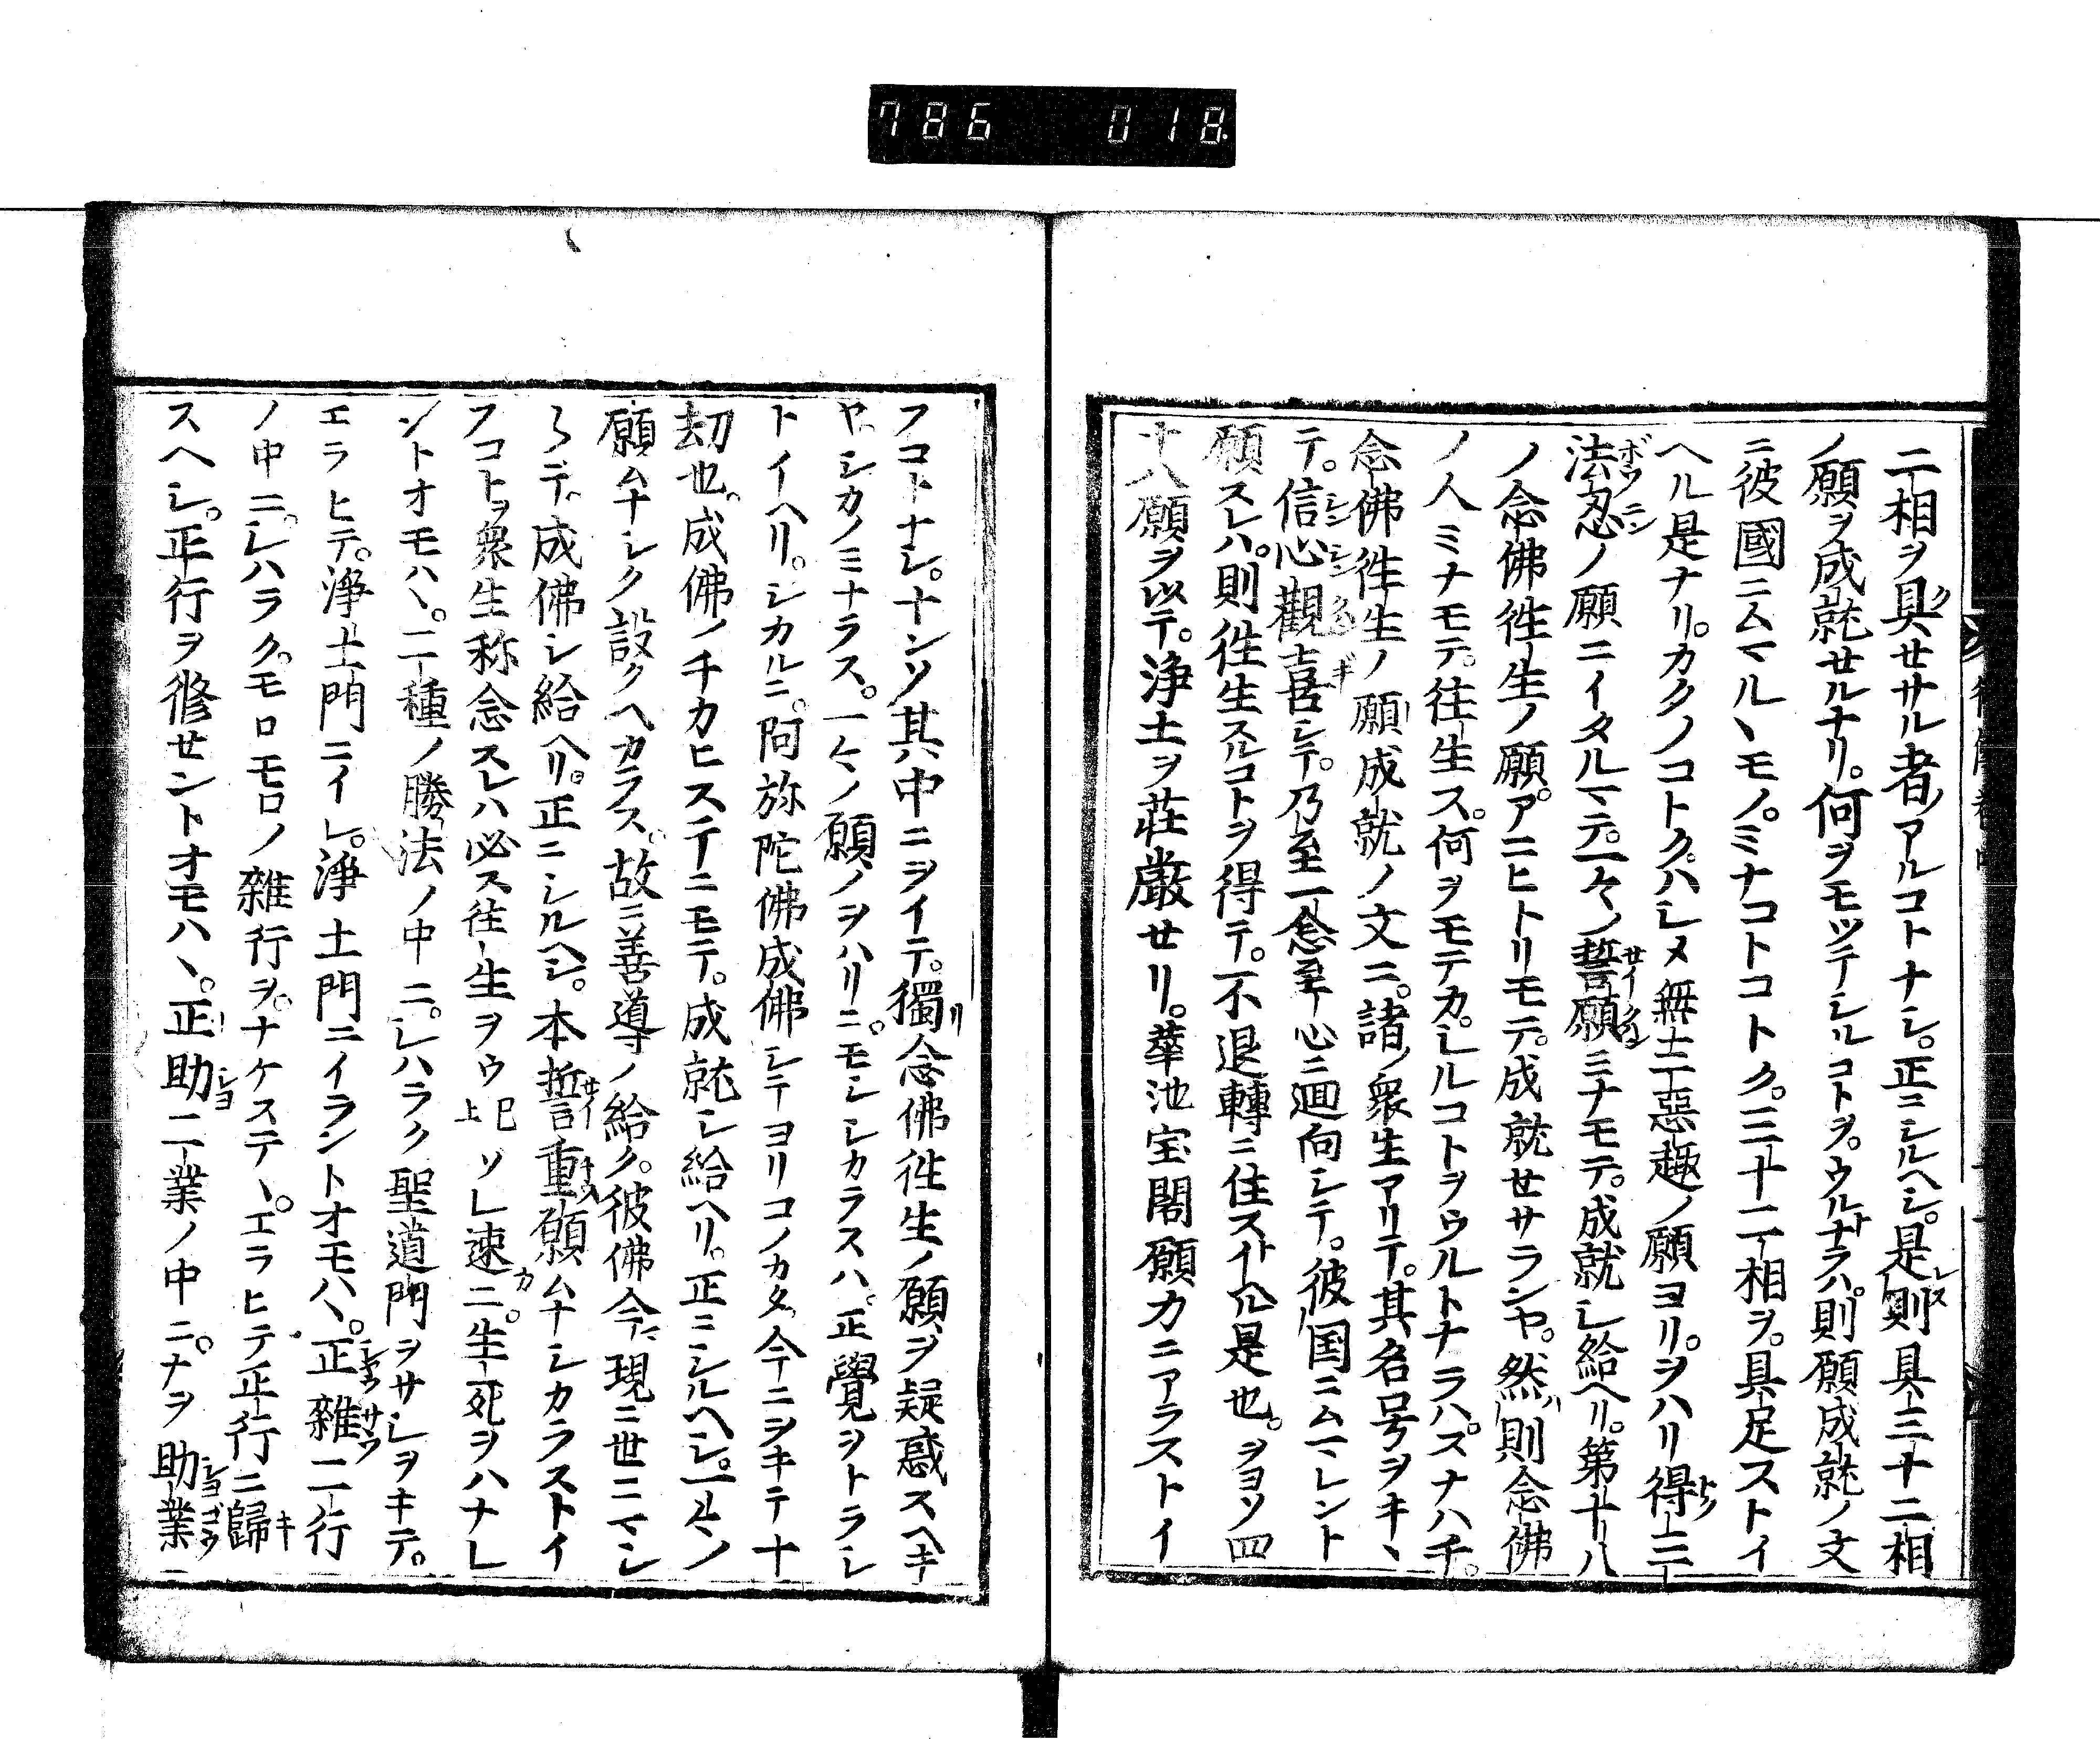 786 018
二相ヲ具セサル者アルコトナシ。正ニシルヘシ。是則具三十二相
ノ願ヲ成就セルナリ。何ヲモツテシルコトヲ。ウルトナラハ。則願成就ノ文
ニ彼國ニムマルヽモノ。ミナコトコトク。三十二相ヲ。具足ストイ
ヘル是ナリ。カクノコトク。ハシメ無三惡趣ノ願ヨリ。ヲハリ得三
法忍ノ願ニイタルマテ。一々ノ誓願ミナモテ。成就シ給ヘリ。第十八
ノ念佛徃生ノ願。アニヒトリモテ。成就セサランヤ。然則念佛
ノ人ミナモテ。往生ス。何ヲモテカ。シルコトヲウルトナラハ。スナハチ。
念佛徃生ノ願成就ノ文ニ。諸ノ衆生アリテ。其名号ヲキヽ
テ。信心觀喜シテ。乃至一念至心ニ廻向シテ。彼国ニムマレント
願スレハ。則徃生スルコトヲ得テ。不退轉ニ住ストイヘル是也。ヲヨソ四
十八願ヲ以テ。淨土ヲ莊嚴セリ。華池宝閣願力ニアラストイ
フコトナシ。ナンソ其中ニヲイテ。獨念佛徃生ノ願ヲ疑惑スヘキ
ヤ。シカノミナラス。一々ノ願ノヲハリニ。モシシカラスハ。正覺ヲトラシ
トイヘリ。シカルニ。阿弥陀佛成佛シテヨリコノカタ。今ニヲキテ十
劫也。成佛ノチカヒステニモテ。成就シ給ヘリ。正ニシルヘシ。一々ノ
願ムナシク設クヘカラス。故ニ善導ノ給ク。彼佛今現ニ世ニマシ
〱テ。成佛シ給ヘリ。正ニシルヘシ。本誓重願ムナシカラストイ
フコトヲ衆生称念スレハ必ス往生ヲウ已上ソレ速ニ。生死ヲハナレ
ントオモハヽ。二種ノ勝法ノ中ニ。シハラク聖道門ヲサシヲキテ。
エラヒテ。淨土門ニイレ。淨土門ニイラントオモハヽ。正雜二行
ノ中ニ。シハラク。モロモロノ雜行ヲ。ナケステヽ。エラヒテ正行ニ歸
スヘシ。正行ヲ修セントオモハヽ。正助二業ノ中ニ。ナヲ助業ニ